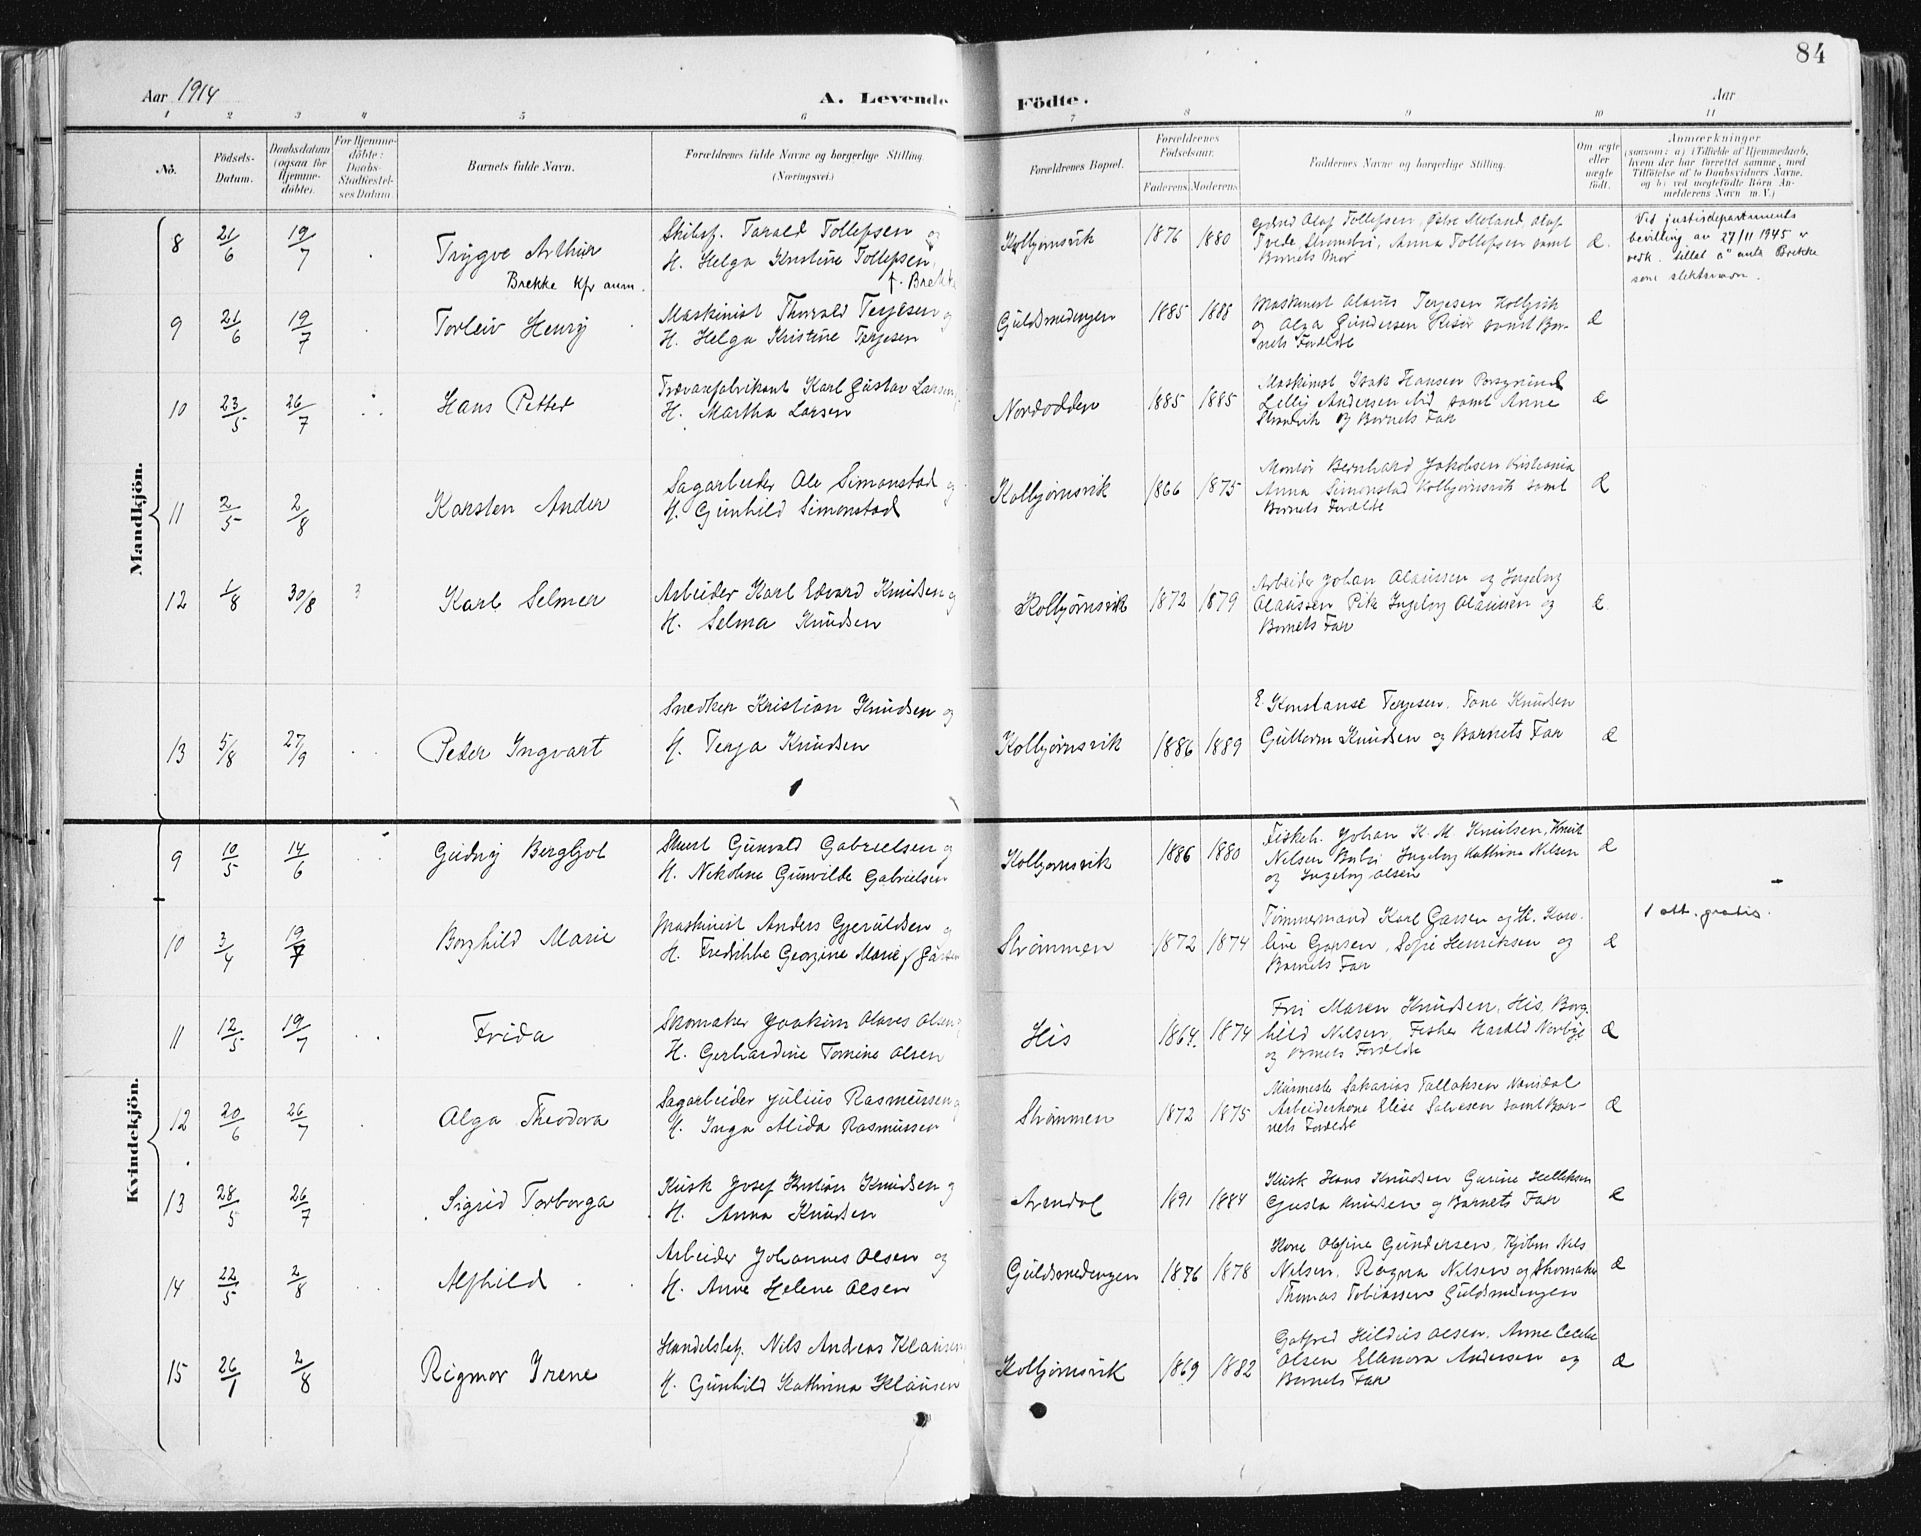 84
Aar 1914
A. Levende Födte.
Aar
1 2 3 4 5 6 7 8 9 10 11
No.
Födsels-Datum.
Daabsdatum (ogsaa for Hjemme-döbte).
For Hjemme-döbte: Daabs-Stadfæstel-ses Datum
Barnets fulde Navn.
Forældrenes fulde Navne og borgerlige Stilling. (Næringsvei.)
Forældrenes Bopæl.
Forældrenes Födselsaar.
Faderens. Moderens.
Faddernes Navne og borgerlige Stilling.
Om ægte eller uægte födt.
Anmærkninger
(saasom: a) i Tilfælde af Hjemmedaab, hvem der har forrettet samme, med Tilföielse af to Daabsvidners Navne, og b) ved uægtefödte Börn Anmelderens Navn m. V.)
Mandkjön.
8 21/6 19/7 Trygve Arthur
Brekke kfr anm.
Skibsf. Tarald Tollefsen og
H. Helga Kristine Tollefsen,
f. Brekke
Kolbjørnsvik 1876 1880
Olaf Tollefsen, Østre Moland, Olaf
Anna Tollefsen samt
Barnets Mor
Æ.
Ved justisdepartements
bevilling av 27/11 1945 er
vedk. tillat å anta Brekke
som slektsnavn.
9 21/6 19/7 Torleiv Henry
Maskinist Thorvald Terjesen og
H. Helga Kristine Terjesen
Guldsmedengen 1885 1888
Maskinist Olaus Terjesen
og Olga Gundersen Risör samt Bar-
nets Forældre
Æ
10 23/5 26/7 Hans Petter
Trævarefabrikant Karl Gustav Larsen,
H. Martha Larsen
Nordodden 1885 1885
Maskinist Isak Hansen Porsgrund
Lilly Andersen ibid samt Anne
og Barnets Far
Æ
11 2/5 2/8 Karsten Ander
Sagarbeider Ole Simonstad og
H. Gunhild Simonstad
Kolbjørnsvik 1866 1875
Montör Bernhard Jakobsen Kristiania
Anna Simonstad Kolbjørnsvik samt
Barnets Forældre
Æ
12 1/8 30/8 3 Karl Selmer
Arbeider Karl Edvard Knudsen og
H. Selma Knudsen
Kolbjørnsvik 1872 1879
Arbeider Johan Olaussen og Ingeborg
Olaussen, Pike Ingeborg Olaussen og
Barnets Far
Æ.
13 5/8 27/9 Peder Ingvart
Snedker Kristian Knudsen og
H. Terja Knudsen
Kolbjørnsvik 1886 1889
E. Konstanse Terjesen, Tone Knudsen
Guttorm Knudsen og Barnets Far
Æ
Kvindekjön.
9 10/5 14/6 Gudny Bergljot
Gunvald Gabrielsen og
H. Nikoline Gunvilde Gabrielsen
Kolbjørnsvik 1886 1880
Fiskeh. Johan K. M. Knutsen, Knut
Nilsen Ingeborg Kathrine Nilsen
og Ingeborg Olsen
Æ
10 3/4 19/7 Borghild Marie
Maskinist Anders Gjeruldsen og
H. Fredrikke Georgine Marie f.
Strømmen 1872 1874
Tømmermand Karl Garsen og H. Karo-
line Garsen, Sofie Henriksen og
Barnets Far
Æ
1 att. gratis.
11 12/5 19/7 Frida
Skomaker Joakim Olaves Olsen
H. Gerhardine Tomine Olsen
His 1864. 1874
Fru Maren Knudsen, His, Borg-
hild Nilsen, Fisker Harald Norbye
og Barnets Forældre
Æ
12 20/6 26/7 Olga Theodora
Sagarbeider Julius Rasmussen og
H. Inga Alida Rasmussen
Strømmen 1872 1875
Murmester Sakarias Tallaksen
Arbeiderkone Elise Salvesen samt Bar-
nets Forældre
Æ
13 28/5 26/7 Sigrid Torborga
Kusk Josef Kristian Knudsen og
H. Anna Knudsen
Arendal 1891 1884
Kusk Hans Knudsen Gurine
Gusta Knudsen og Barnets Far
Æ
14 22/5 2/8 Alfhild
Arbeider Johannes Olsen og
H. Anne Helene Olsen
Guldsmedengen 1876 1878
Kone Olefine Gundersen, Nils
Nilsen, Ragna Nilsen og Skomaker
Thomas Tobiassen Guldsmedengen
Æ
15 26/1 2/8 Rigmor Irene
Handelsbetj. Nils Andreas Klausen
H. Gunhild Kathrina Klausen
Kolbjørnsvik 1869 1882
Gotfred Olsen, Anne Cecilie
Olsen Ellenora Andersen og
Barnets Far
Æ